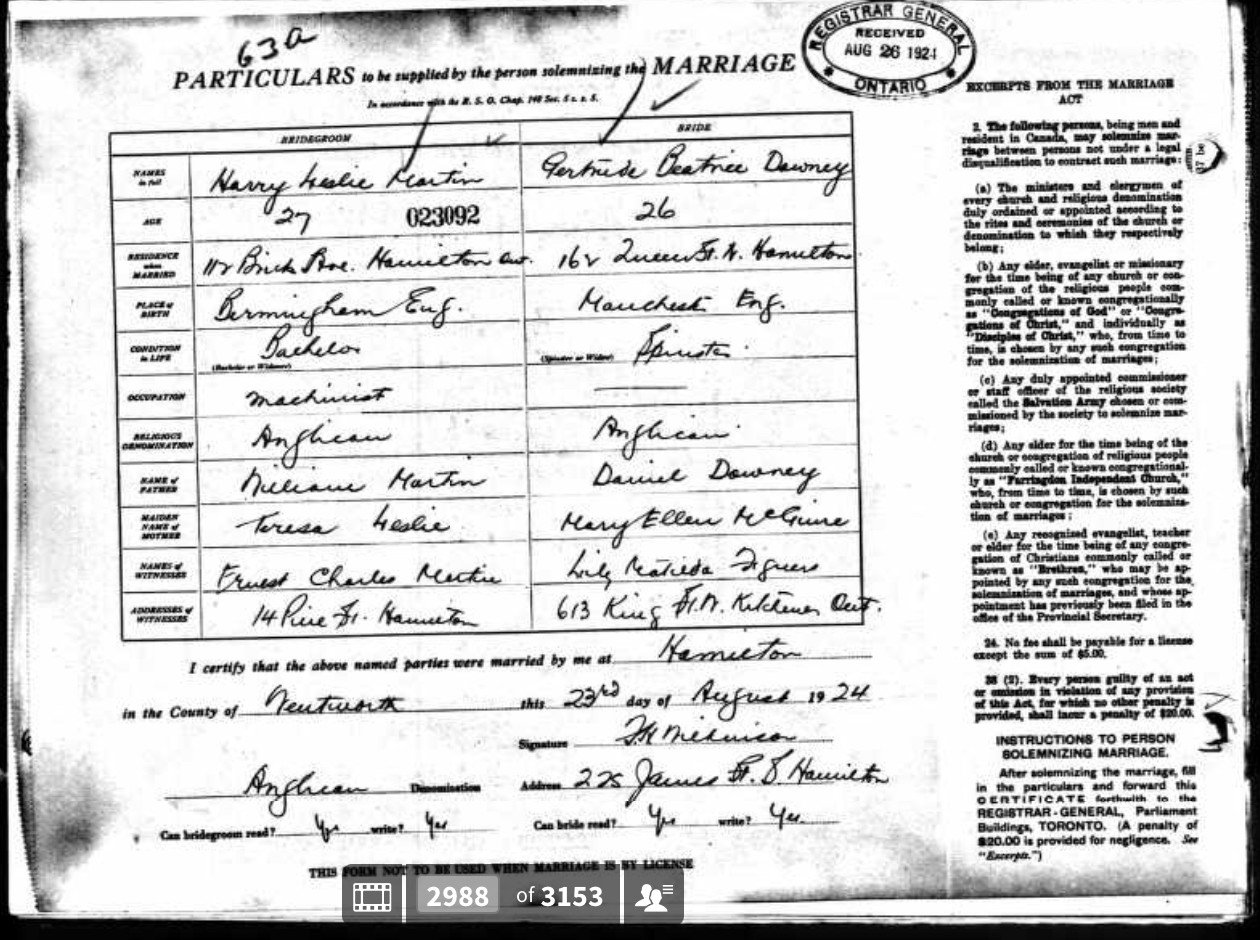 63a
PARTICULARS to be supplied by the person solemnizing the MARRIAGE
In accordance with the R. S. O. Chap. 148 Sec. 5 s. s. 5.
REGISTRAR GENERAL
RECEIVED
AUG 26 1924
ONTARIO
BRIDEGROOM BRIDE
NAMES in full Harry Leslie Martin Gertrude Beatrice Downey
AGE 27 023092 26
RESIDENCE when MARRIED 112 Ave. Hamilton Ont. 162 Queen St. N. Hamilton
PLACE of BIRTH Birmingham Eng. Manchester Eng.
CONDITION in LIFE Bachelor (Bachelor or Widower) (Spinster or Widow) Spinster
OCCUPATION machinist
RELIGIOUS DENOMINATION Anglican Anglican
NAME of FATHER William Martin Daniel Downey
MAIDEN NAME of MOTHER Teresa Leslie Mary Ellen McGuire
NAMES of WITNESSES Ernest Charles Martin Lily Matilda
ADDRESSES of WITNESSES 14 Pine St. Hamilton 613 King St. W. Kitchener Ont.
I certify that the above named parties were married by me at Hamilton
in the County of Wentworth this 23rd day of August 1924
Signature
Anglican Denomination Address 225 James St. S Hamilton
Can bridegroom read? Yes write? Yes Can bride read? Yes write? Yes.
THIS FORM NOT TO BE USED WHEN MARRIAGE IS BY LICENSE
EXCERPTS FROM THE MARRIAGE
ACT
2. The following persons, being men and
resident in Canada, may solemnize mar-
riage between persons not under a legal
disqualification to contract such marriage:
(a) The ministers and clergymen of
every church and religious denomination
duly ordained or appointed according to
the rites and ceremonies of the church or
denomination to which they respectively
belong;
(b) Any elder, evangelist or missionary
for the time being of any church or con-
gregation of the religious people com-
monly called or known congregationally
as "Congregations of God" or "Congre-
gations of Christ," and individually as
"Disciples of Christ," who, from time to
time, is chosen by any such congregation
for the solemnization of marriages;
(c) Any duly appointed commissioner
or staff officer of the religious society
called the Salvation Army chosen or com-
missioned by the society to solemnize mar-
riages;
(d) Any elder for the time being of the
church or congregation of religious people
commonly called or known congregational-
ly as "Farringdon Independent Church,"
who, from time to time, is chosen by such
church or congregation for the solemniza-
tion of marriages;
(e) Any recognized evangelist, teacher
or elder for the time being of any congre-
gation of Christians commonly called or
known as "Brethren," who may be ap-
pointed by any such congregation for the
solemnization of marriages, and whose ap-
pointment has previously been filed in the
office of the Provincial Secretary.
24. No fee shall be payable for a license
except the sum of $5.00.
38 (2). Every person guilty of an act
or omission in violation of any provision
of this Act, for which no other penalty is
provided, shall incur a penalty of $20.00.
INSTRUCTIONS TO PERSON
SOLEMNIZING MARRIAGE.
After solemnizing the marriage, fill
in the particulars and forward this
CERTIFICATE forthwith to the
REGISTRAR-GENERAL, Parliament
Buildings, TORONTO. (A penalty of
$20.00 is provided for negligence. See
"Excerpts.")
2988 of 3153